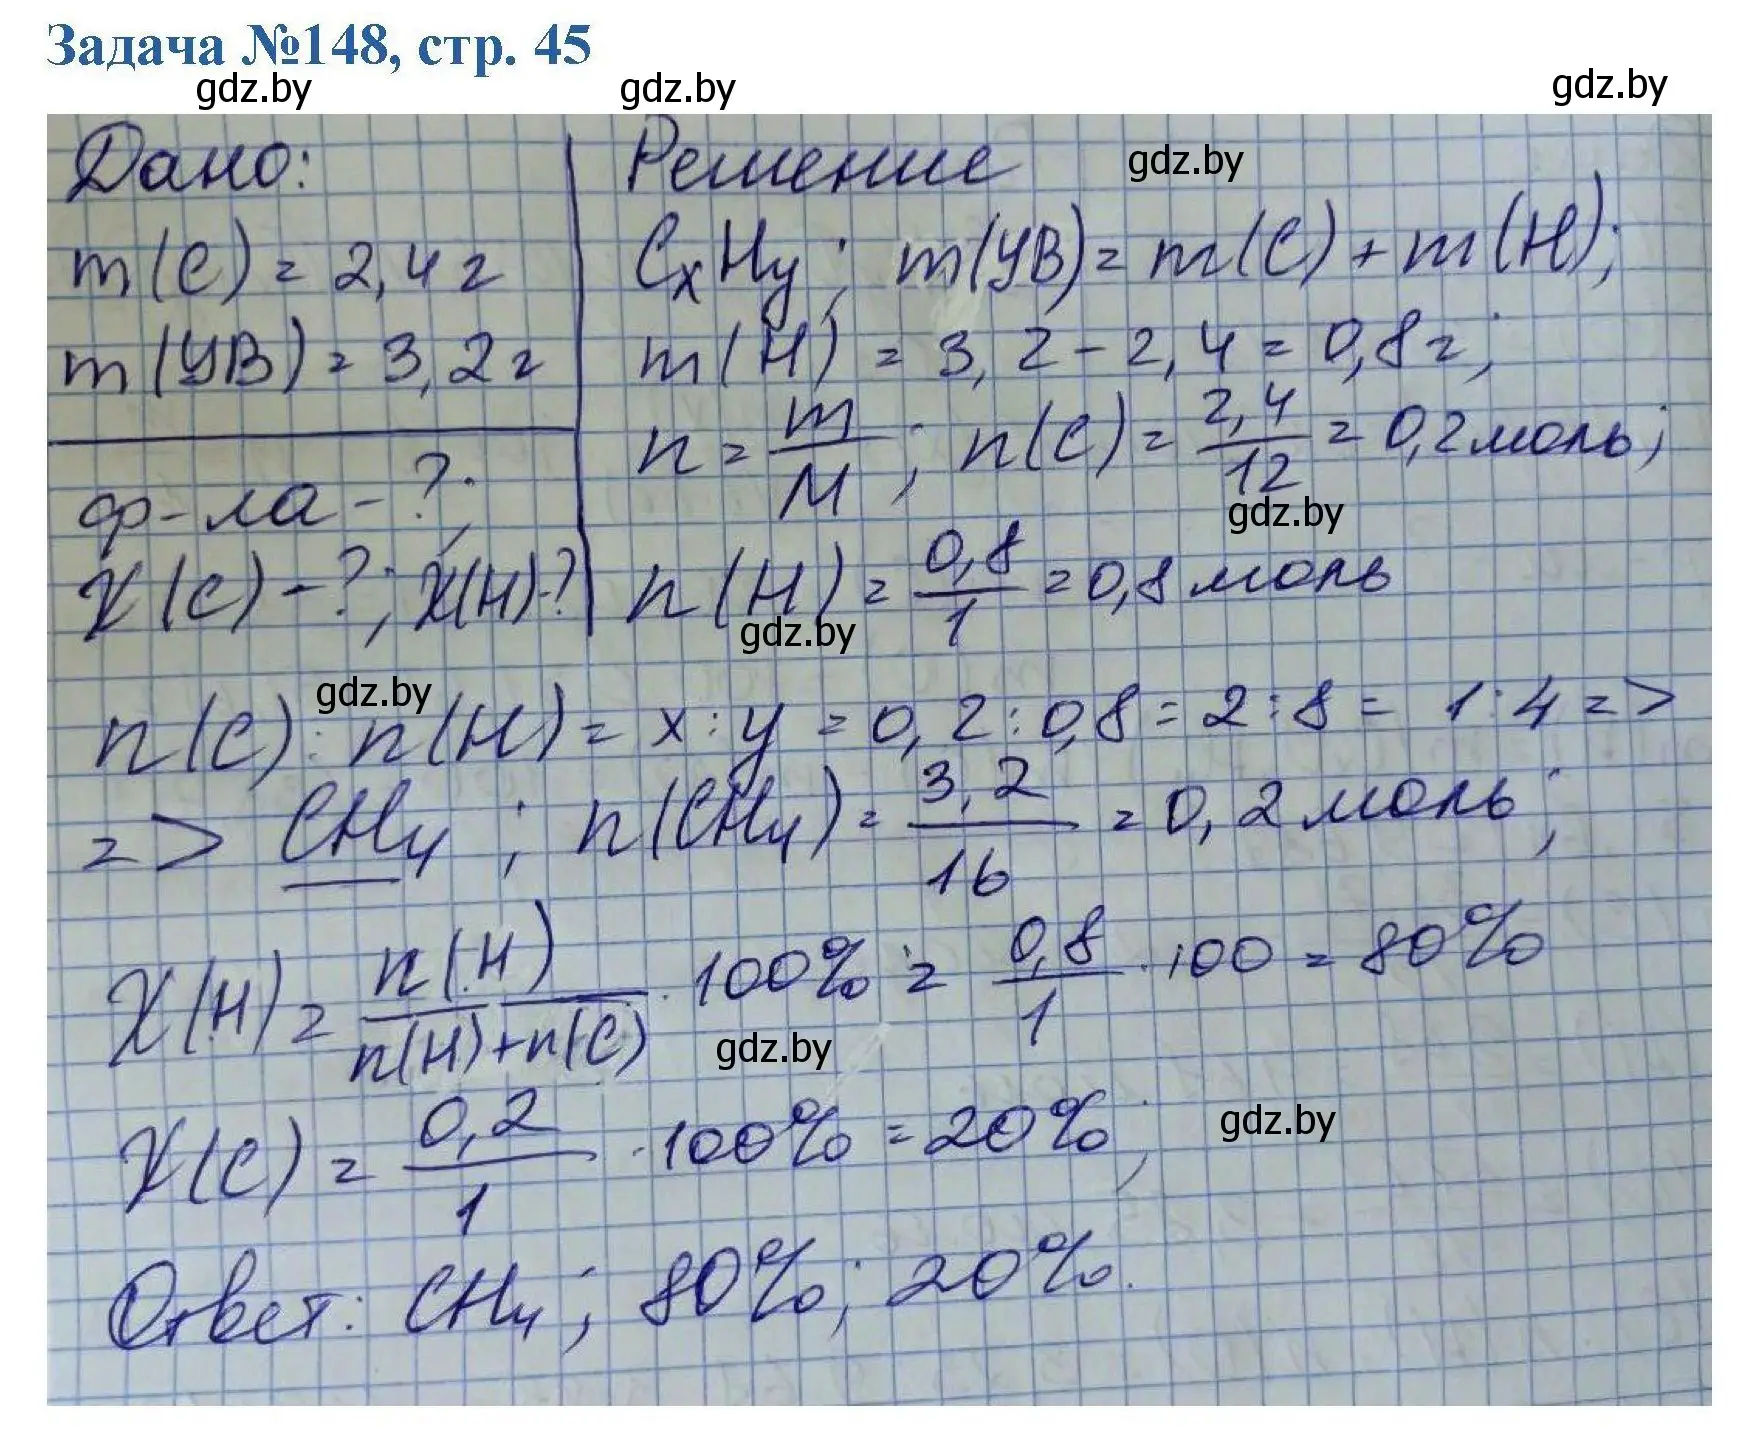 Задача №148, стр. 45
gdz.by gdz.by gdz.by
Дано:
m(C) = 2,4 г
m(УВ) = 3,2 г
ф-ла - ?;
χ(C) - ?; χ(H) - ?
Решение gdz.by
CxHy; m(УВ) = m(C) + m(H);
m(H) = 3,2 - 2,4 = 0,8 г;
n = m/M; n(C) = 2,4/12 = 0,2 моль;
gdz.by
n(H) = 0,8/1 = 0,8 моль
gdz.by
gdz.by
n(C) : n(H) = x : y = 0,2 : 0,8 = 2 : 8 = 1 : 4 =>
=> CH₄; n(CH₄) = 3,2/16 = 0,2 моль;
χ(H) = n(H)/(n(H)+n(C)) · 100% = 0,8/1 · 100 = 80%
gdz.by
χ(C) = 0,2/1 · 100% = 20%;
gdz.by
Ответ: CH₄; 80%; 20%.